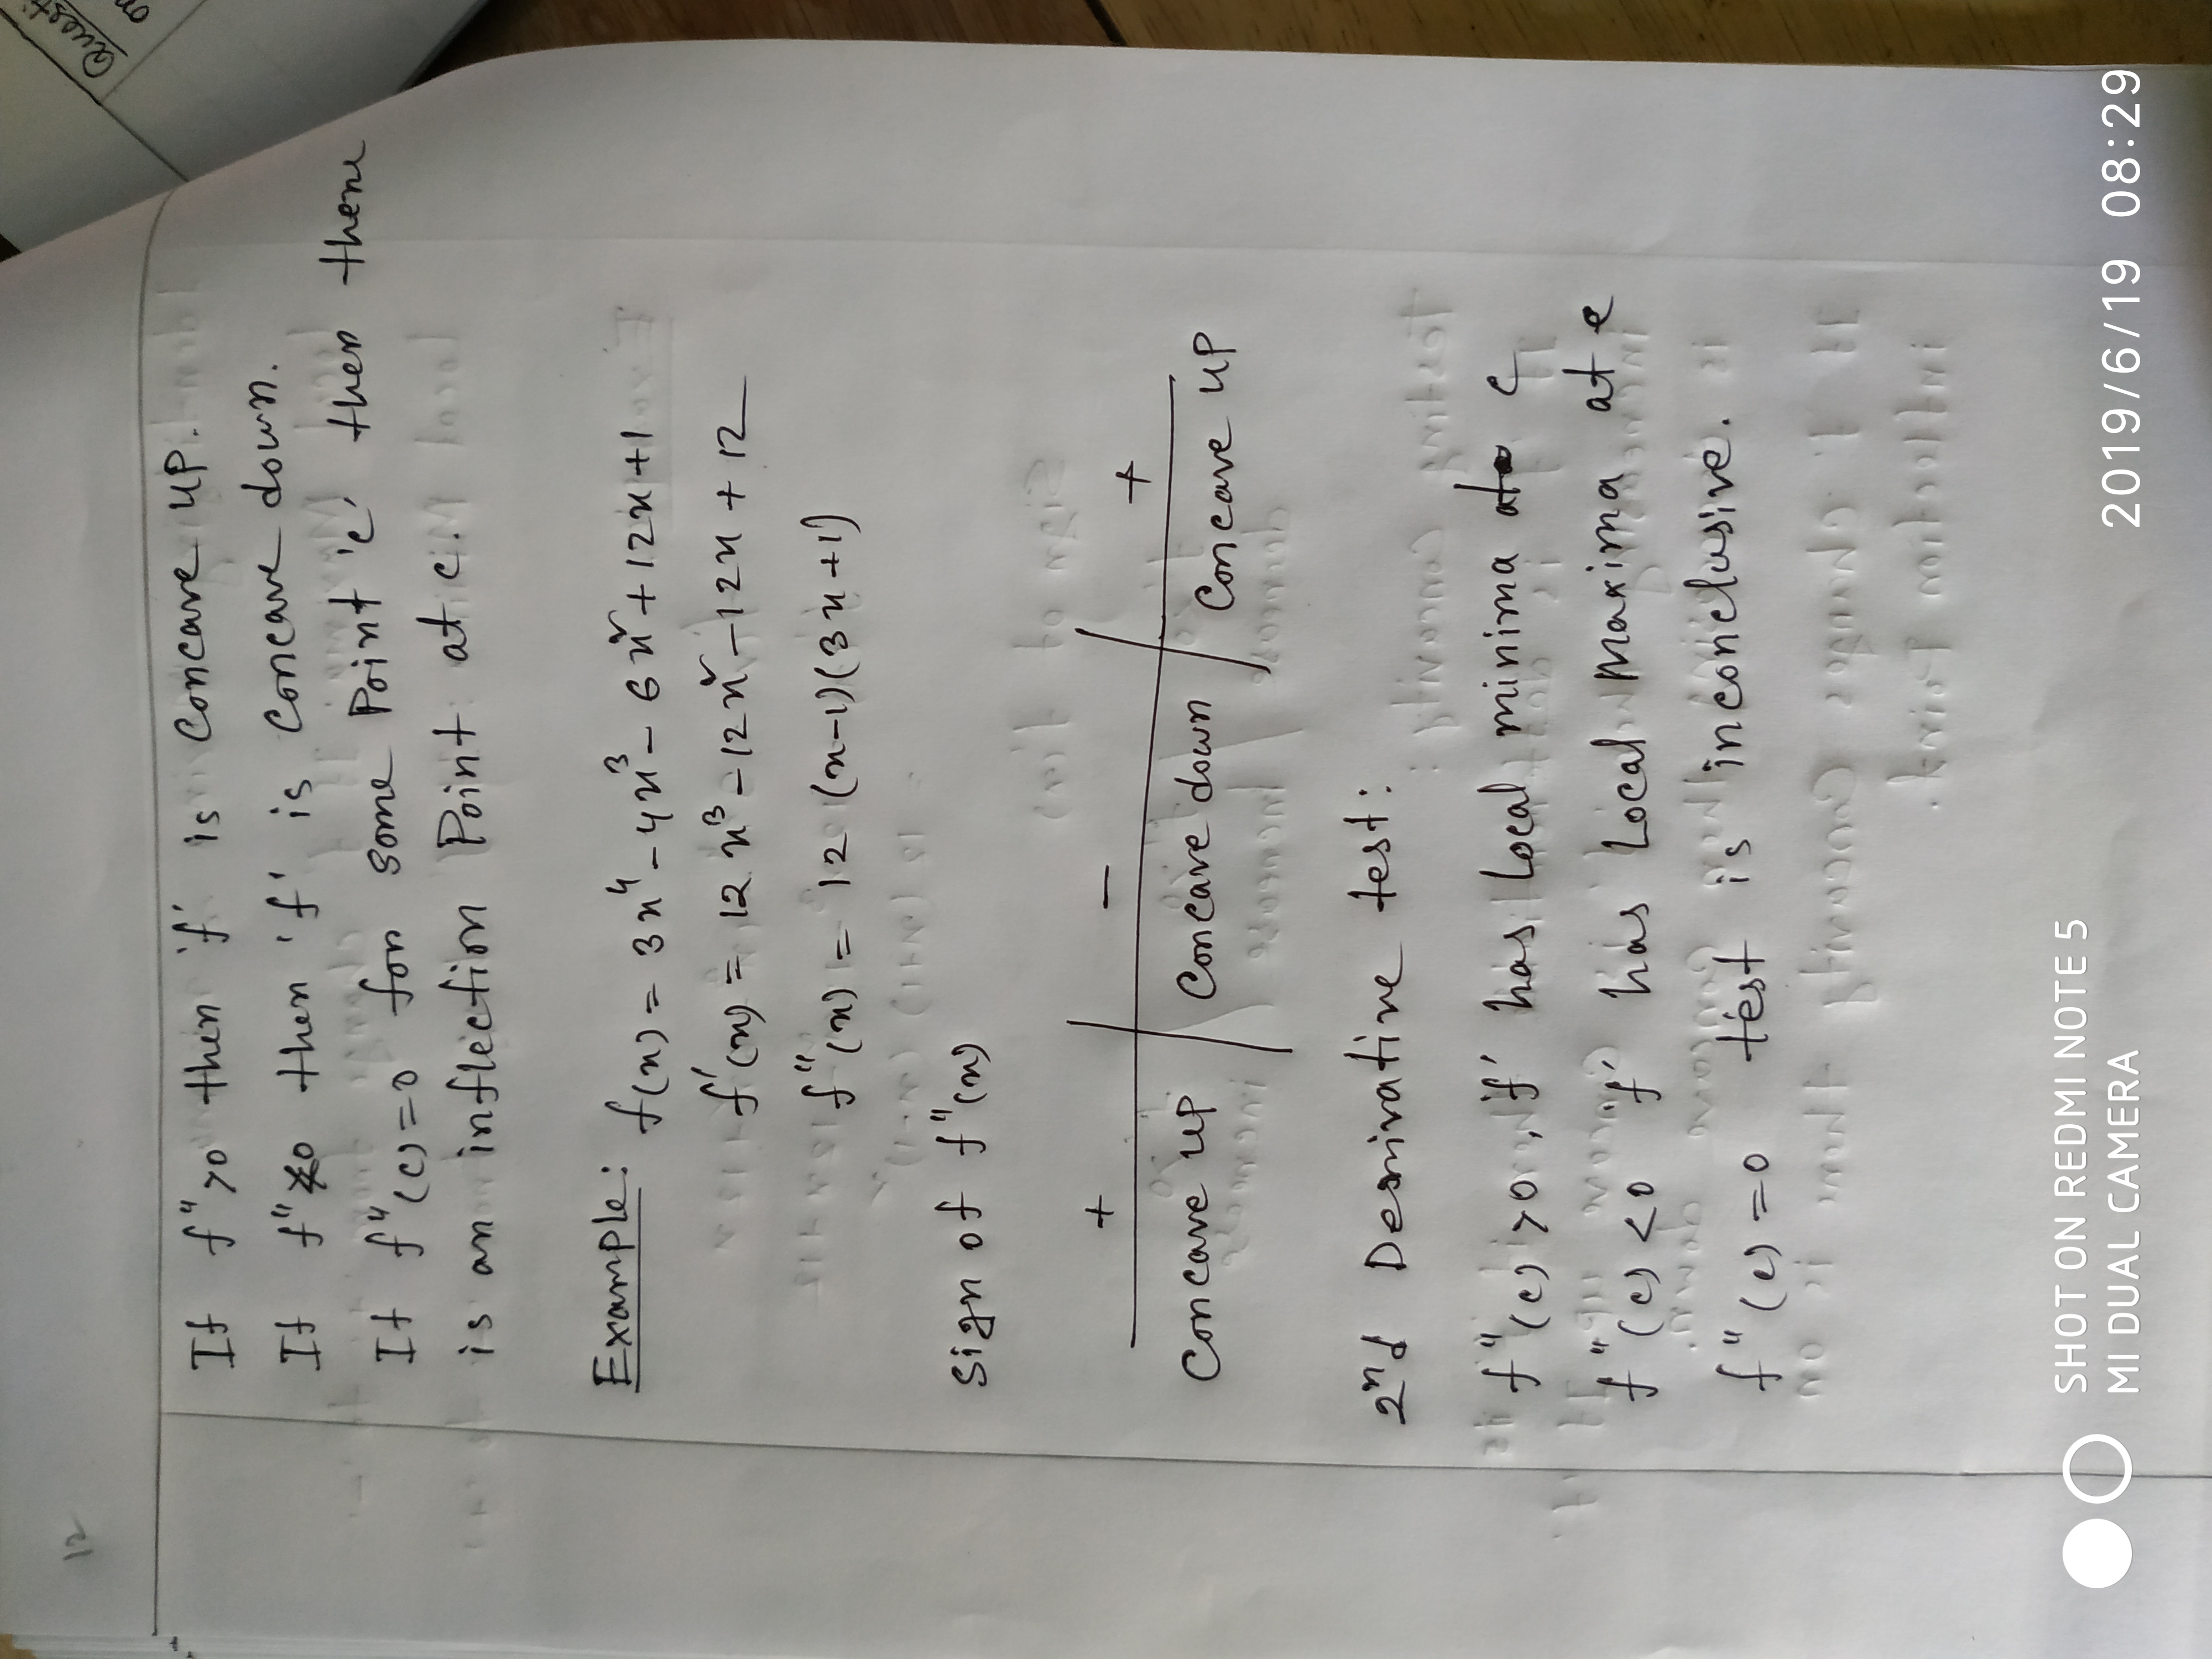 12
Questi
on
If f">0 then 'f' is concave up.
If f"<0 then 'f' is concave down.
If f"(c)=0 for some point 'c' then there
is an inflection point at c.
Example: f(x) = 3x⁴-4x³-6x²+12x+1
f'(x) = 12x³-12x²-12x+12
f"(x) = 12 (x-1)(3x+1)
sign of f"(x)
+ − +
Concave up Concave down Concave up
2nd Derivative test:
f"(c)>0, 'f' has local minima at c
f"(c)<0 'f' has local maxima at c
f"(c)=0 test is inconclusive.
SHOT ON REDMI NOTE 5
MI DUAL CAMERA
2019/6/19 08:29